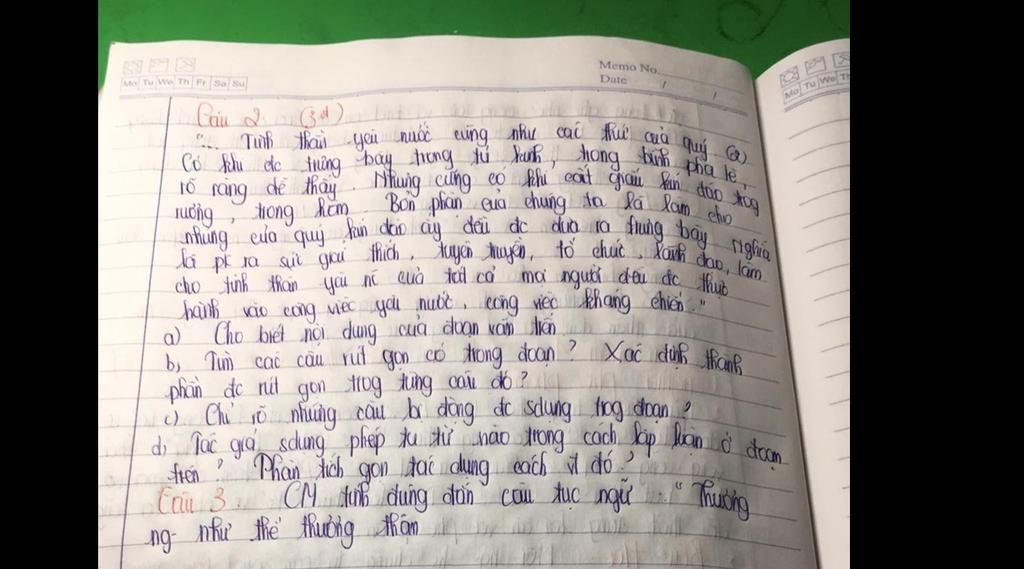 Memo No.
Date / /
Mo Tu We Th Fr Sa Su
Mo Tu We Th
Câu 2 (3đ)
"... Tinh thần yêu nước cũng như các thứ của quý. (2)
Có khi đc trưng bày trong tủ kính, trong bình pha lê,
rõ ràng dễ thấy. Nhưng cũng có khi cất giấu kín đáo trog
rương, trong hòm. Bổn phận của chúng ta là làm cho
những của quý kín đáo ấy đều đc đưa ra trưng bày. Nghĩa
là pk ra sức giải thích, tuyên truyền, tổ chức, lãnh đạo, làm
cho tinh thần yêu nc của tất cả mọi người đều đc thực
hành vào công việc yêu nước, công việc kháng chiến."
a) Cho biết nội dung của đoạn văn trên
b, Tìm các câu rút gọn có trong đoạn? Xác định thành
phần đc rút gọn trog từng câu đó?
c) Chỉ rõ những câu bị động đc sdụng trog đoạn?
d, Tác giả sdụng phép tu từ nào trong cách lập luận ở đoạn
trên? Phân tích gọn tác dụng cách vt đó?
Câu 3. CM tính đúng đắn câu tục ngữ "Thương
ng- như thể thương thân